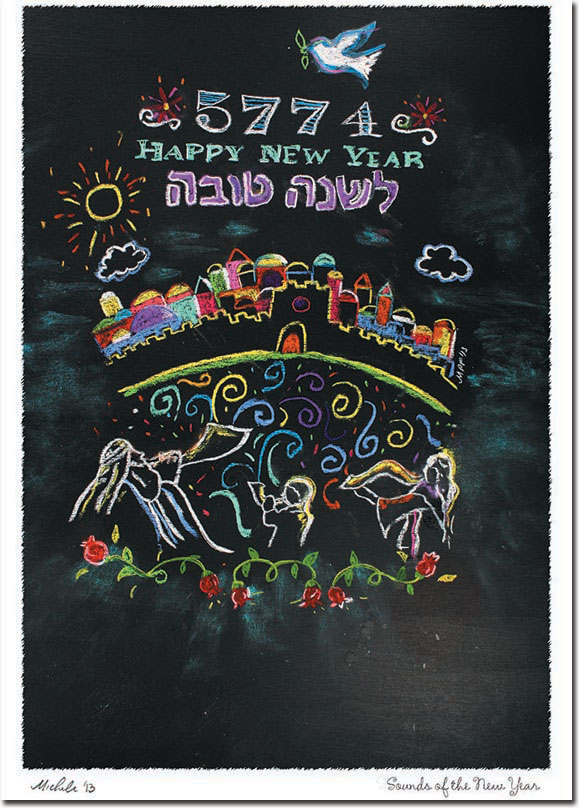 5774
HAPPY NEW YEAR
לשנה טובה
MPF '13
Michele '13
Sounds of the New Year